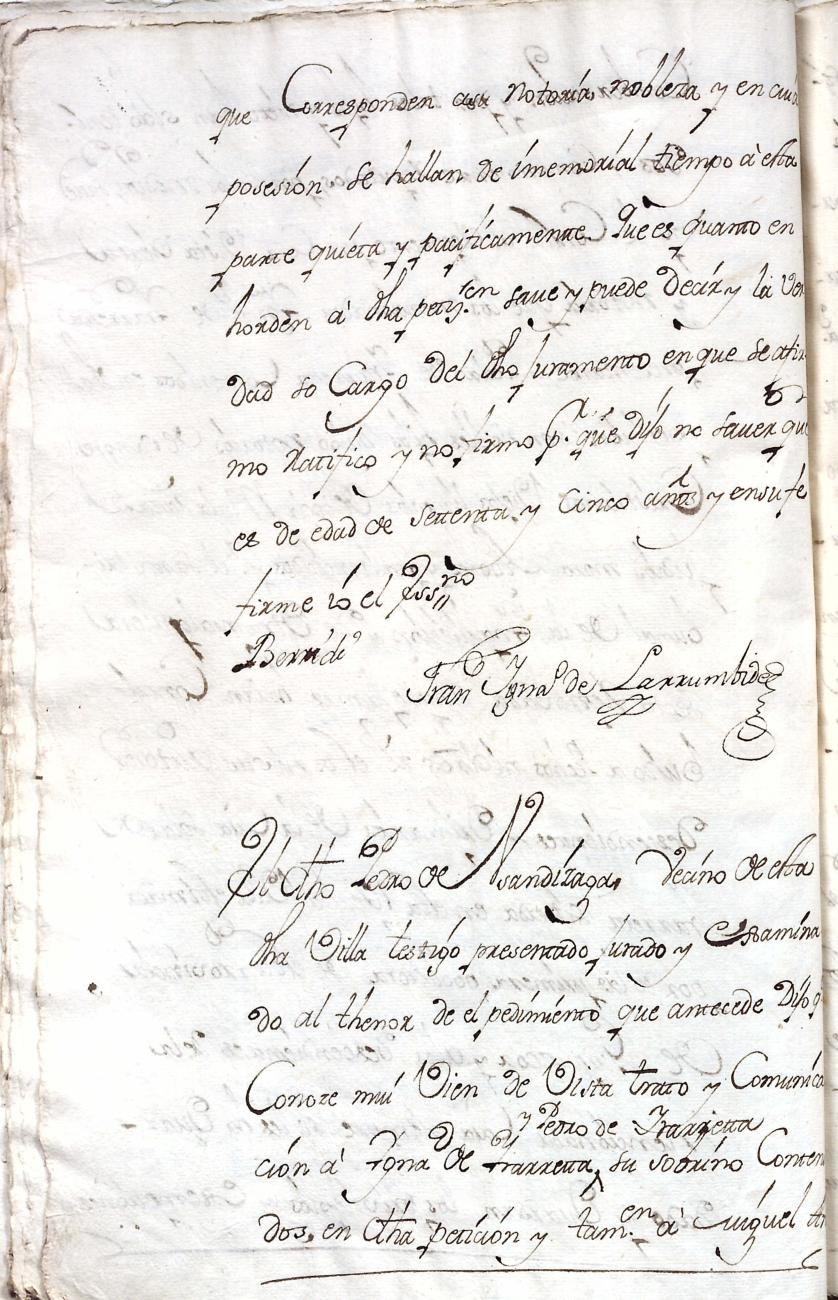 que Corresponden asu notoria nobleza y en cuia
posesión se hallan de imemorial tiempo à esta
parte quieta y pacificamente Que es quanto en
horden à dha petiz.en save y puede decir y la ver
dad so Cargo del dho juramento en que se afir
mo Ratifico y no firmo p.r que dijo no saver que
es de edad de settenta y Cinco años y en su fe
firme io el Ess.no
Franº Ignaº de Larrumbide
El dho Pedro de Vecino de esta
dha Villa testigo presentado jurado y Examina
do al thenor de el pedimiento que antecede Dijo q
Conoze mui Vien de Vista trato y Comunica
y Pedro de Iharretta
ción à Ignaº de Iharretta su sobrino Conteni
dos en dha petición y tam.en à Miguel